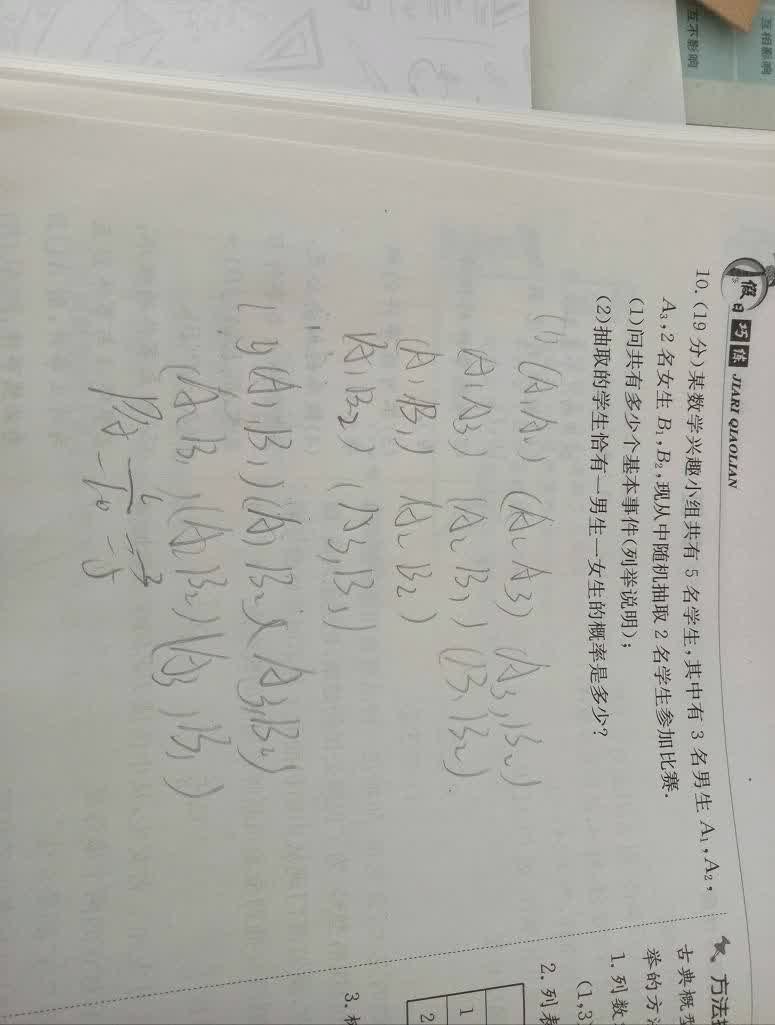 互相影响
互不影响
假日巧练 JIARI QIAOLIAN
10.(19分)某数学兴趣小组共有5名学生,其中有3名男生A₁,A₂,
A₃,2名女生B₁,B₂,现从中随机抽取2名学生参加比赛.
(1)问共有多少个基本事件(列举说明);
(2)抽取的学生恰有一男生一女生的概率是多少?
(1) (A₁A₂) (A₂A₃) (A₃,B₂)
(A₁A₃) (A₂B₁) (B₁B₂)
(A₁,B₁) (A₂B₂)
(A₁,B₂) (A₃,B₁)
(2) (A₁,B₁)(A₁B₂)(A₃,B₂)
(A₂B₁)(A₂B₂)(A₃,B₁)
P(A)=6/10=3/5
方法
古典概型
举的方法
1.列数
(1,3
2.列表
1
2
3.